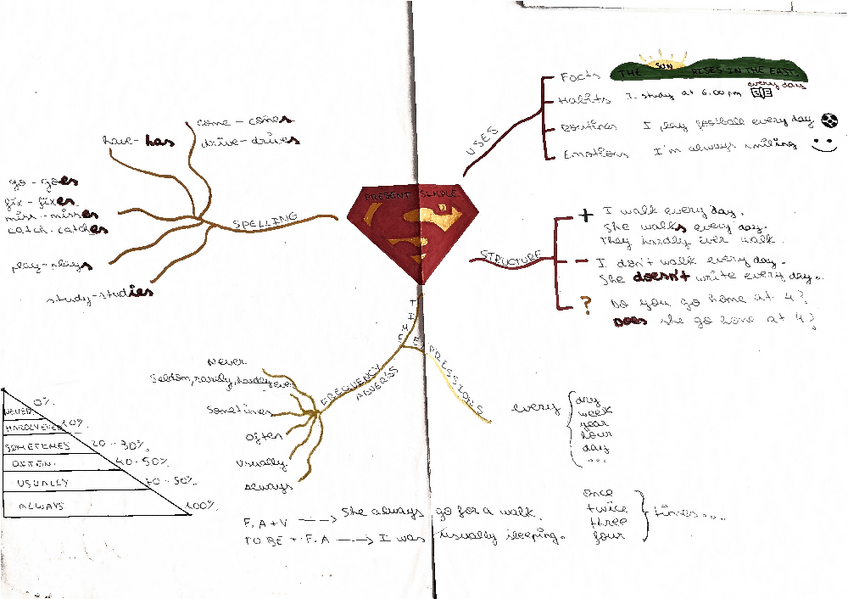 PRESENT SIMPLE
USES
Facts
THE SUN RISES IN THE EAST
Habits I study at 6.00 pm every day
Routines I play football every day
Emotions I'm always smiling
STRUCTURE
+ I walk every day.
She walks every day.
They hardly ever walk.
- I don't walk every day.
She doesn't write every day.
? Do you go home at 4?
Does she go home at 4?
SPELLING
come - comes
drive - drives
have - has
go - goes
fix - fixes
miss - misses
catch - catches
play - plays
study - studies
TIME
FREQUENCY ADVERBS
Never
Seldom, rarely, hardly ever
Sometimes
Often
Usually
Always
NEVER 0%
HARDLY EVER 10%
SOMETIMES 20 - 30%
OFTEN 40 - 50%
USUALLY
ALWAYS 100%
F.A + V She always go for a walk.
TO BE + F.A I was usually sleeping.
every
day
week
year
hour
day
...
once
twice
three
four
times...